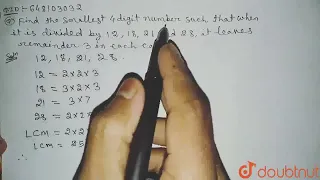 QID:-648103032
Find the smallest 4 digit number such that when
it is divided by 12, 18, 21 28, it leaves
remainder 3 in each
12, 18, 21, 28.
12 = 2×2×3
18 = 3×2×3
21 = 3×7
28 = 2×2
LCM = 2×2
LCM = 25
∴
doubtnut